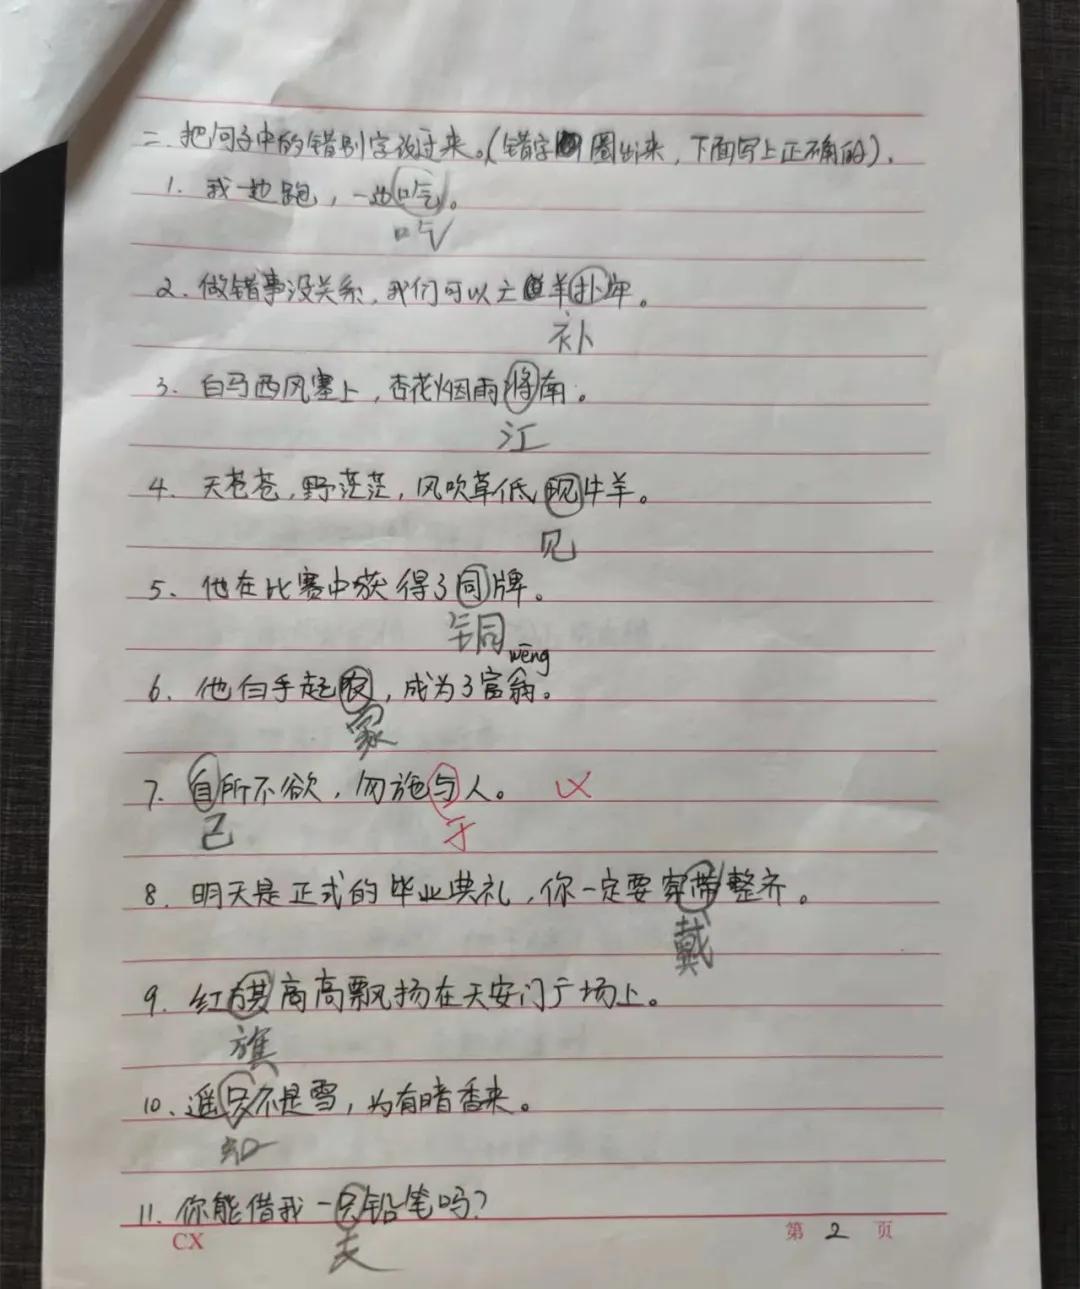 二.把句子中的错别字改过来。(错字圈出来,下面写上正确的)。
1. 我一边跑,一边。
吃
2. 做错事没关系,我们可以亡羊扑牢。
补
3. 白马西风塞上,杏花烟雨将南。
江
4. 天苍苍,野茫茫,风吹草低现牛羊。
见
5. 他在比赛中获得了同牌。
铜
wēng
6. 他白手起农,成为了富翁。
家
7. 自所不欲,勿施与人。
己 于
8. 明天是正式的毕业典礼,你一定要穿带整齐。
戴
9. 红高高飘扬在天安门广场上。
旗
10. 遥只不是雪,为有暗香来。
知
11. 你能借我一只铅笔吗?
CX 第 2 页